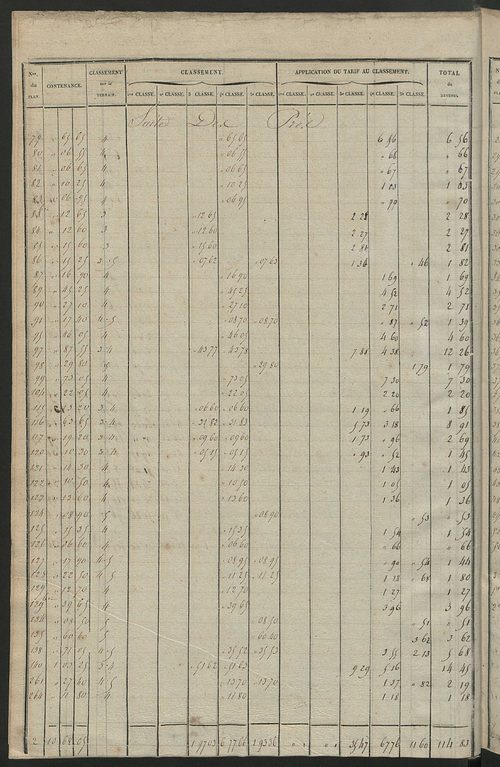 Nos. du PLAN. CONTENANCE. CLASSEMENT sur le TERRAIN. CLASSEMENT. APPLICATION DU TARIF AU CLASSEMENT. TOTAL du REVENU.
1re CLASSE. 2e CLASSE. 3e CLASSE. 4e CLASSE. 5e CLASSE. 1re CLASSE. 2e CLASSE. 3e CLASSE. 4e CLASSE. 5e CLASSE.
Suite Des Prés
79 " 65 65 4 " 65 65 6 56 6 56
80 " 06 4 " 66 " 66
81 " 06 65 4 " 06 65 " 67 " 67
82 " 10 25 4 " 10 25 1 03 1 03
83 4 " 06 95 " 70 " 70
" 12 65 3 " 12 65 2 28 2 28
84 " 12 60 3 " 12 60 2 27 2 27
85 " 15 60 3 " 15 60 2 81 2 81
86 " 15 25 3-5 " 07 62 " 07 63 1 36 " 46 1 82
87 " 16 90 4 " 16 90 1 69 1 69
89 " 45 25 4 " 45 25 4 52 4 52
90 " 27 10 4 " 27 10 2 71 2 71
91 " 17 40 4-5 " 08 70 " 08 70 " 87 " 52 1 39
95 " 46 05 4 " 46 05 4 60 4 60
97 " 87 55 3-4 " 43 77 " 43 78 7 88 4 38 12 26
98 " 29 80 5 " 29 80 1 79 1 79
99 " 73 05 4 " 73 05 7 30 7 30
104 " 22 05 4 " 22 05 2 20 2 20
115 " 13 20 3-4 " 06 60 " 06 60 1 19 " 66 1 85
116 " 63 65 3-4 " 31 82 " 31 83 5 73 3 18 8 91
117 " 19 20 3-4 " 09 60 " 09 60 1 73 " 96 2 69
120 " 10 30 3-4 " 05 15 " 05 15 " 93 " 52 1 45
121 " 14 30 4 " 14 30 1 43 1 43
122 " 10 50 4 " 10 50 1 05 1 05
123 " 13 60 4 " 13 60 1 36 1 36
" 08 90 5 " 08 90 " 53 " 53
125 " 15 35 4 " 15 35 1 54 1 54
4 " 06 60 " 66 " 66
127 " 17 90 4-5 " 08 95 " 08 95 " 90 " 54 1 44
" 22 50 4-5 " 11 25 " 11 25 1 12 " 68 1 80
129 " 12 70 4 " 12 70 1 27 1 27
" 39 65 4 " 39 65 3 96 3 96
" 08 50 5 " 08 50 " 51 " 51
5 " 60 40 3 62 3 62
138 " 71 05 4-5 " 35 52 " 35 53 3 55 2 13 5 68
140 1 03 25 3-4 " 51 62 " 51 63 9 29 5 16 14 45
261 " 27 40 4-5 " 13 70 " 13 70 1 37 " 82 2 19
264 " 11 80 4 " 11 80 1 18 1 18
2 10 68 05 1 97 03 6 77 66 1 93 36 " " 35 47 67 76 11 60 114 83